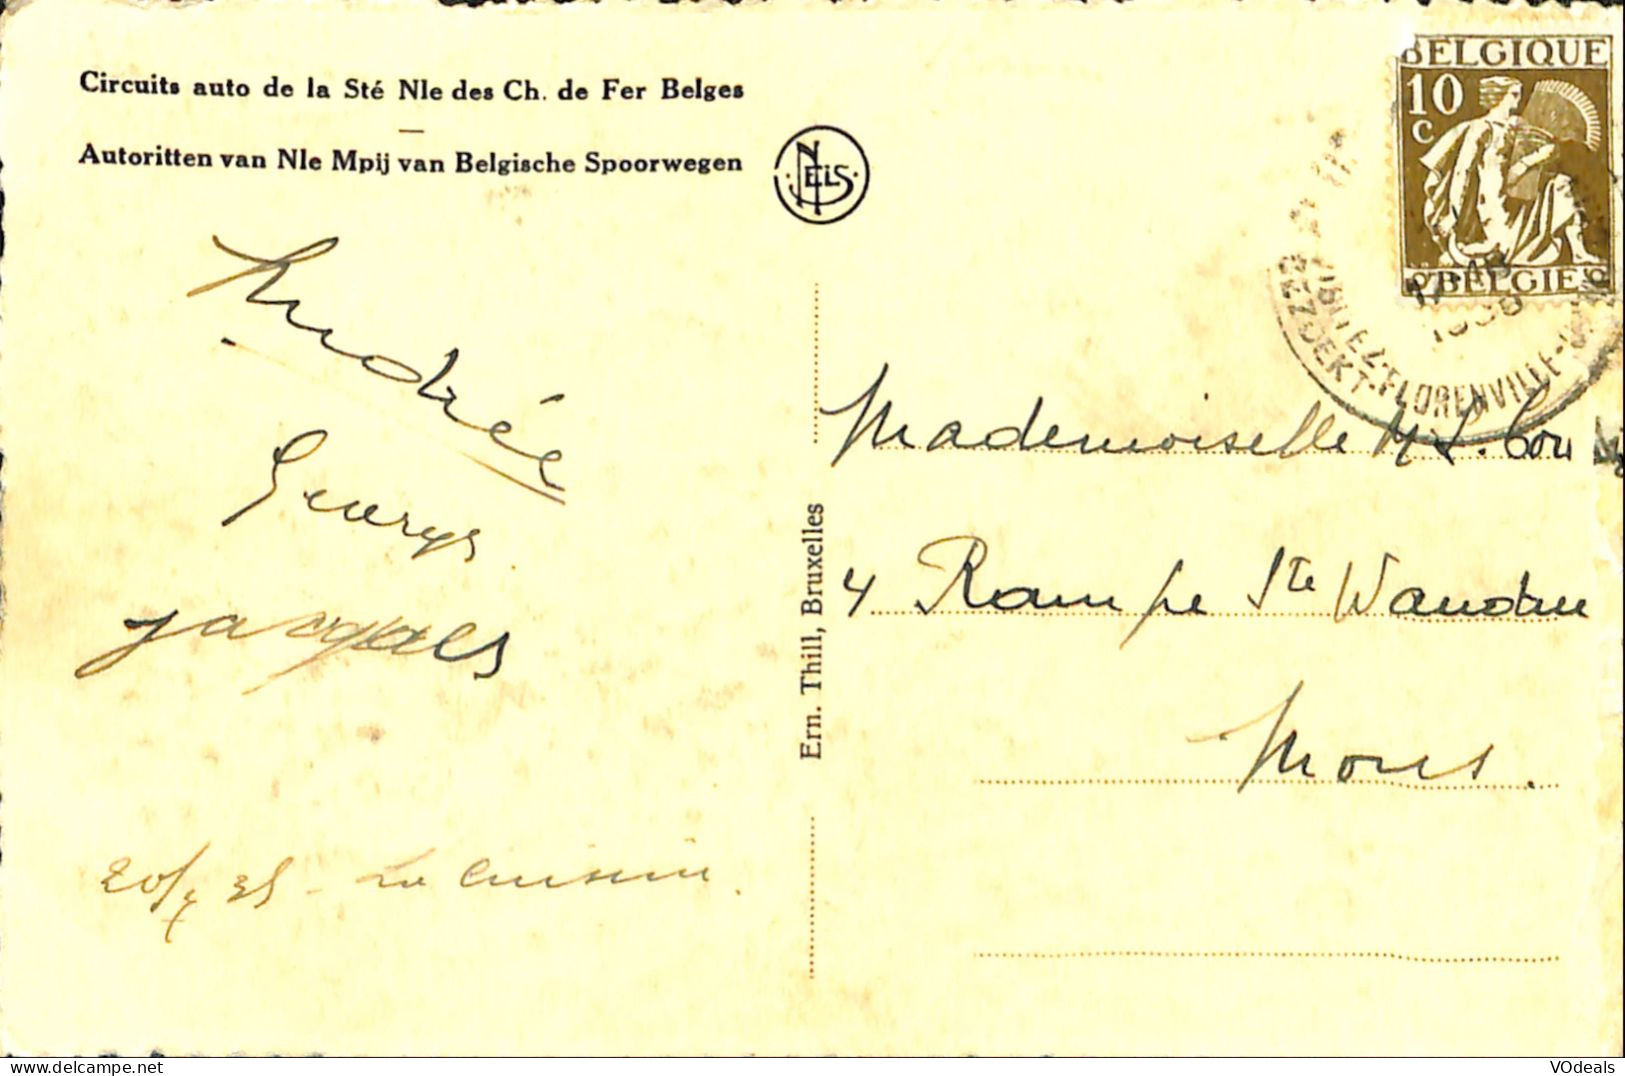 Circuits auto de la Sté Nle des Ch. de Fer Belges
Autoritten van Nle Mpij van Belgische Spoorwegen
NELS
BELGIQUE
10
C
BELGIE
VISITEZ FLORENVILLE
BEZOEKT
Andrée
Georges
Jacques
Mademoiselle M L.
4 Rampe Ste Waudru
Mons.
20/7 35 - La Cuisine.
Ern. Thill, Bruxelles
www.delcampe.net
VOdeals